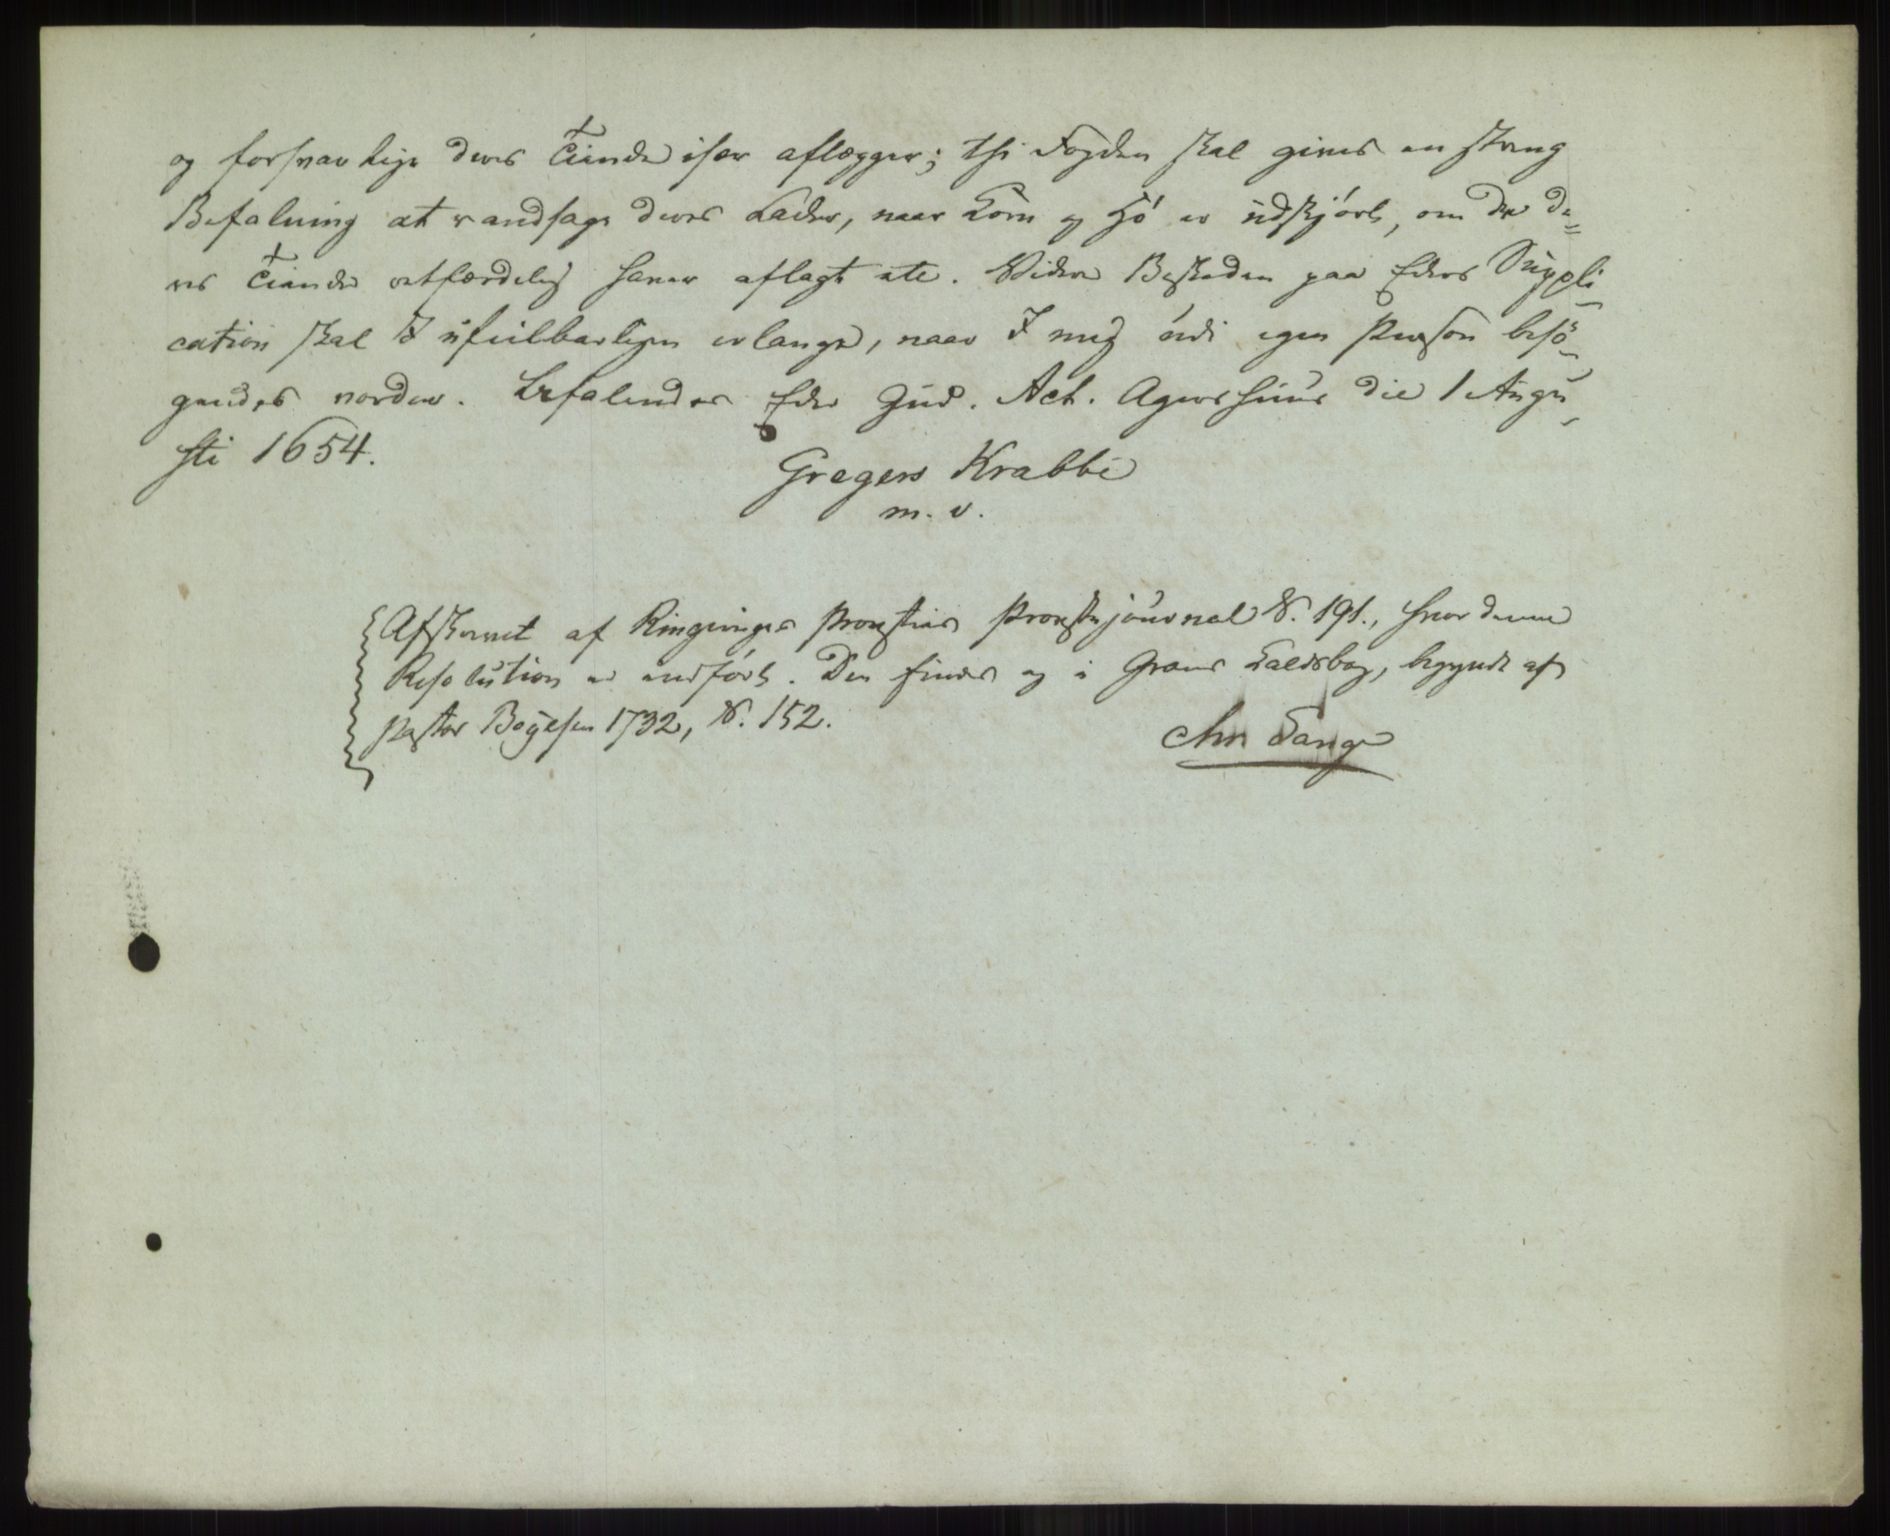 og forsvarlige deres Tiende iser aflægger; thi Fogden skal gives en streng
Befalning at randsage deres Lader, naar Korn og Hö er udkjört, om de de=
res Tiende retfærdelig haver aflagt etc. Videre Beskeden paa Eders Suppli-
cation skal I ufeilbarligen erlange, naar I mig udi egen Person besö-
gendes vorder. Befalendes Eder Gud. Act. Agershuus die 1 Augu-
sti 1654.
Gregers Krabbe
m. v.
Afskrevet af Ringeriges Provsties Provstejournal S. 191., hvor denne
Resolution er indfört. Den findes og i Grans Kaldsbog, begyndt af
Pastor Boyesen 1732, S. 152.
Chr Lange